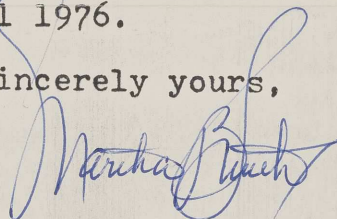 l 1976.
incerely yours,
Martha